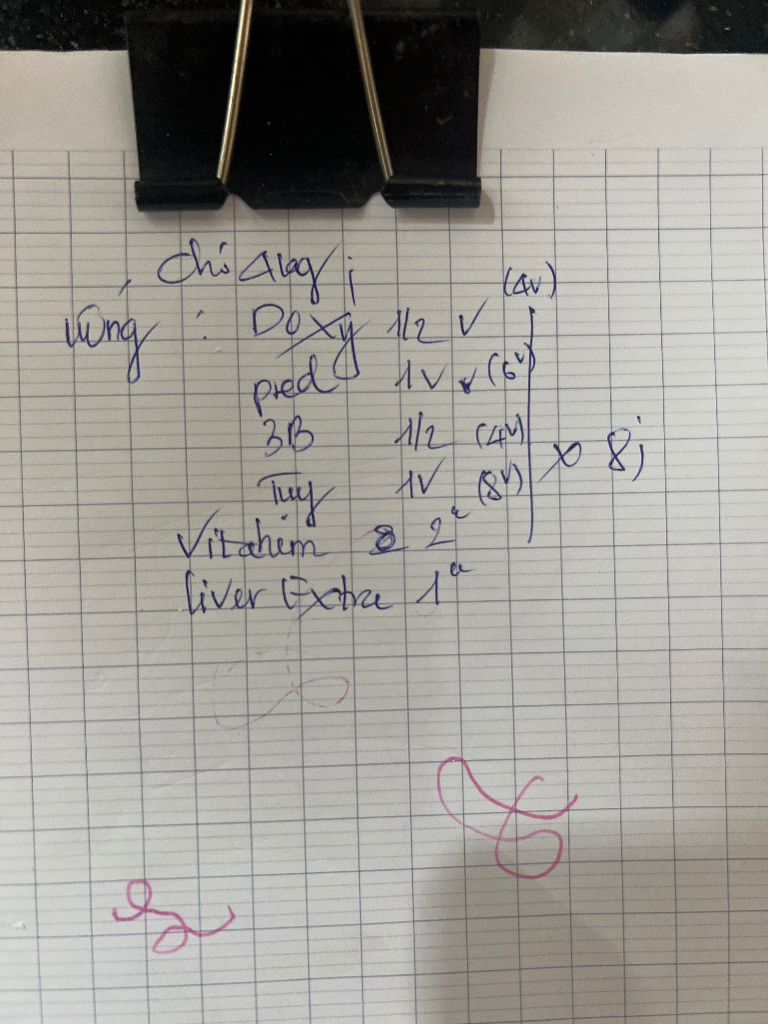 Chó 4kg ;
uống : Doxy 1/2 V (4V)
pred 1V (6V)
3B 1/2 (4V)
Tuy 1V (8V)
x 8j
Vitahim 2
liver Extra 1